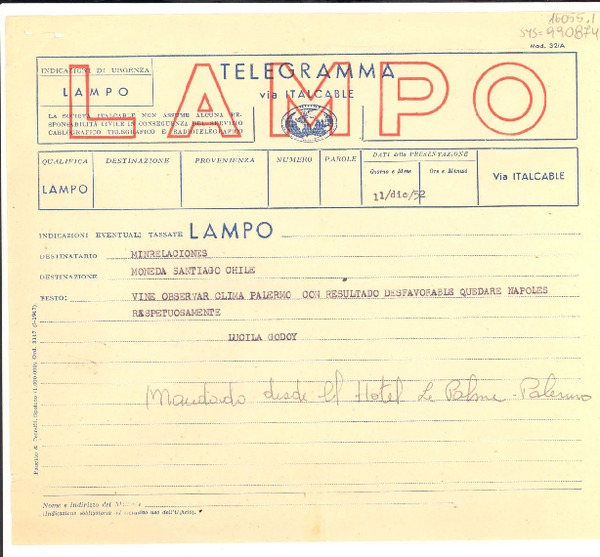 16055.1
SYS=990874
Mod. 32/A
INDICAZIONI DI URGENZA
LAMPO
LAMPO
TELEGRAMMA
via ITALCABLE
LA SOCIETÀ ITALCABLE NON ASSUME ALCUNA RE-
SPONSABILITÀ CIVILE IN CONSEGUENZA DEL SERVIZIO
CABLOGRAFICO TELEGRAFICO E RADIOTELEGRAFICO
QUALIFICA DESTINAZIONE PROVENIENZA NUMERO PAROLE DATI della PRESENTAZIONE
Giorno e Mese Ore e Minuti
LAMPO 11/dic/52 Via ITALCABLE
INDICAZIONI EVENTUALI TASSATE LAMPO
DESTINATARIO MINRELACIONES
DESTINAZIONE MONEDA SANTIAGO CHILE
TESTO: VINE OBSERVAR CLIMA PALERMO CON RESULTADO DESFAVORABLE QUEDARE NAPOLES
RESPETUOSAMENTE
LUCILA GODOY
Mandado desde el Hotel Le Palme - Palermo
Nome e indirizzo del
(Indicazione obbligatoria ad esclusivo uso dell'Ufficio)